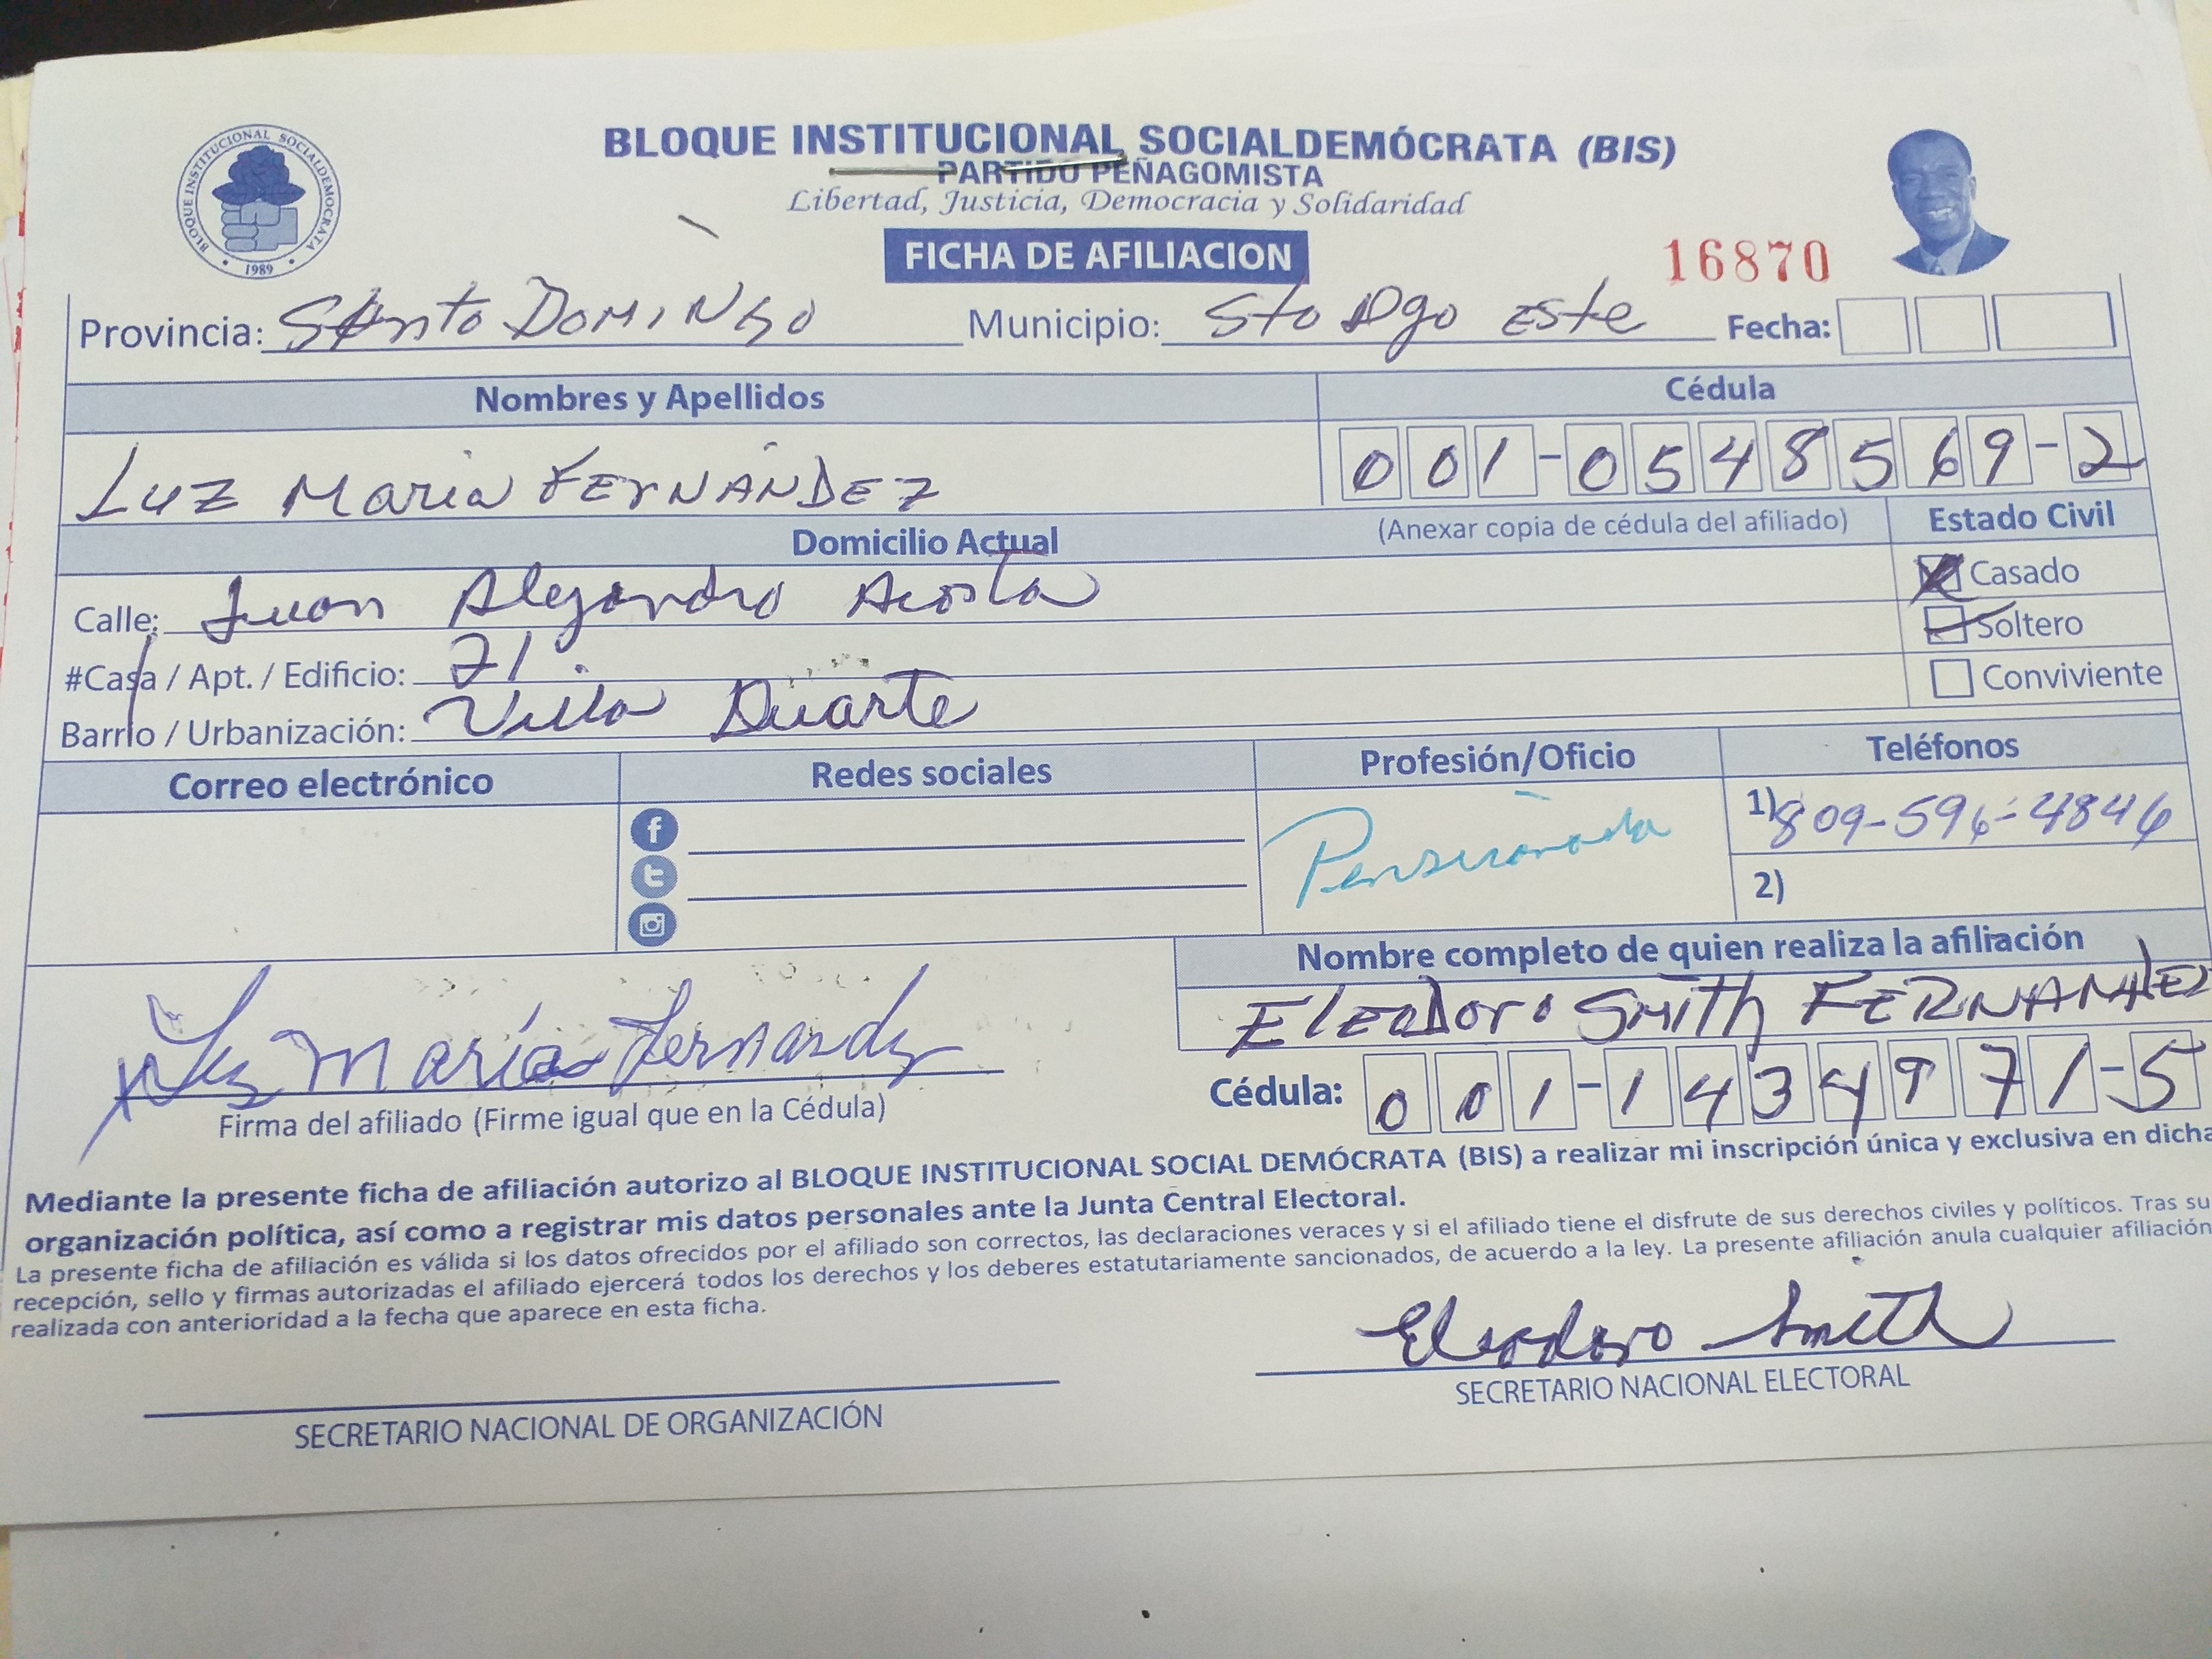 BLOQUE INSTITUCIONAL SOCIALDEMOCRATA
1989
BLOQUE INSTITUCIONAL SOCIALDEMÓCRATA (BIS)
PARTIDO PEÑAGOMISTA
Libertad, Justicia, Democracia y Solidaridad
FICHA DE AFILIACION
16870
Provincia: SAnto DOMINGO Municipio: Sto Dgo Este Fecha:
Nombres y Apellidos Cédula
LUZ María FERNÁNDEZ 001-0548569-2
Domicilio Actual (Anexar copia de cédula del afiliado) Estado Civil
Calle: Juan Alejandro Acosta Casado
#Casa / Apt. / Edificio: 71 Soltero
Barrio / Urbanización: Villa Duarte Conviviente
Correo electrónico Redes sociales Profesión/Oficio Teléfonos
Pensionada 1) 809-596-4846
2)
Nombre completo de quien realiza la afiliación
Eleodoro Smith FERNANDEZ
Luz María Fernandez
Firma del afiliado (Firme igual que en la Cédula) Cédula: 001-1434971-5
Mediante la presente ficha de afiliación autorizo al BLOQUE INSTITUCIONAL SOCIAL DEMÓCRATA (BIS) a realizar mi inscripción única y exclusiva en dicha
organización política, así como a registrar mis datos personales ante la Junta Central Electoral.
La presente ficha de afiliación es válida si los datos ofrecidos por el afiliado son correctos, las declaraciones veraces y si el afiliado tiene el disfrute de sus derechos civiles y políticos. Tras su
recepción, sello y firmas autorizadas el afiliado ejercerá todos los derechos y los deberes estatutariamente sancionados, de acuerdo a la ley. La presente afiliación anula cualquier afiliación
realizada con anterioridad a la fecha que aparece en esta ficha.
Eleodoro Smith
SECRETARIO NACIONAL DE ORGANIZACIÓN SECRETARIO NACIONAL ELECTORAL